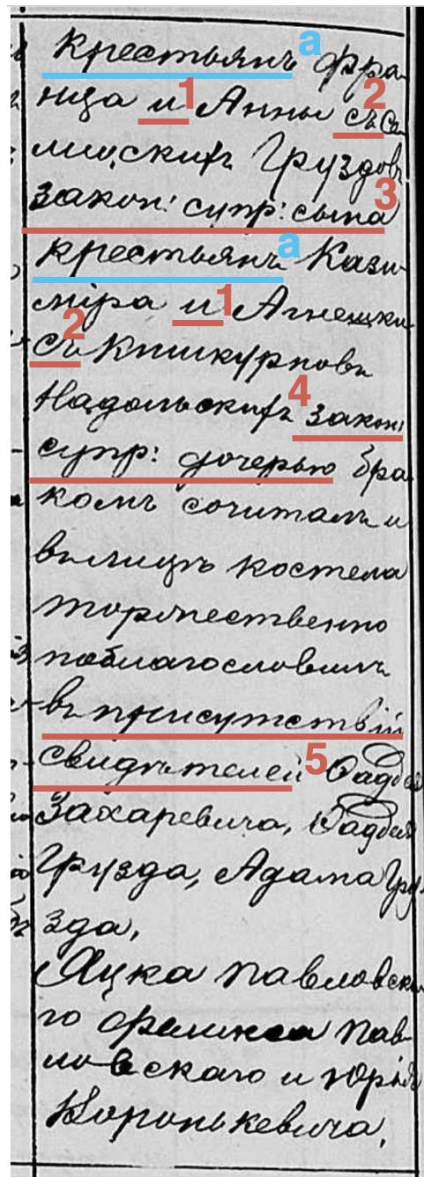 крестьянъ a Фра-
нца и 1 Анны съ 2
Груздовъ
закон: супр: сына 3
крестьянъ a Кази-
мiра и 1 Агнешки
съ 2
Надольскихъ закон: 4
супр: дочерью бра-
комъ сочиталъ и
вълицѣ костела
торжественно
поблагословилъ
въ присутствiи
свидѣтелей 5 Фадѣя
Захаревича, Фадѣя
Грузда, Адама Гру-
зда,
Яцка Павловска-
го Феликса Пав-
ловскаго и Юрiя
Воронькевича.